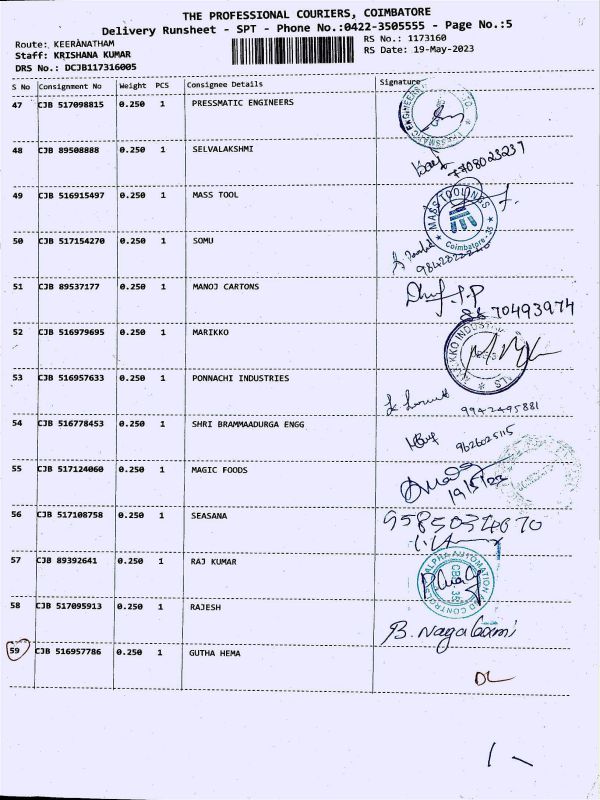 THE PROFESSIONAL COURIERS, COIMBATORE
Delivery Runsheet - SPT - Phone No.:0422-3505555 - Page No.:5
Route: KEERANATHAM
RS No.: 1173160
Staff: KRISHANA KUMAR
RS Date: 19-May-2023
DRS No.: DCJB117316005
S No Consignment No Weight PCS Consignee Details Signature
47 CJB 517098815 0.250 1 PRESSMATIC ENGINEERS
48 CJB 89508888 0.250 1 SELVALAKSHMI
7708023237
49 CJB 516915497 0.250 1 MASS TOOL
MASS TOOLINGS
Coimbatore - 35
50 CJB 517154270 0.250 1 SOMU
51 CJB 89537177 0.250 1 MANOJ CARTONS
8870493974
52 CJB 516979695 0.250 1 MARIKKO
53 CJB 516957633 0.250 1 PONNACHI INDUSTRIES
9942495881
54 CJB 516778453 0.250 1 SHRI BRAMMAADURGA ENGG
9626025115
55 CJB 517124060 0.250 1 MAGIC FOODS
19/5/23
56 CJB 517108758 0.250 1 SEASANA
9585034670
57 CJB 89392641 0.250 1 RAJ KUMAR
ALPHA AUTOMATION AND CONTROLS
58 CJB 517095913 0.250 1 RAJESH
B. Nagalaxmi
59 CJB 516957786 0.250 1 GUTHA HEMA
DL